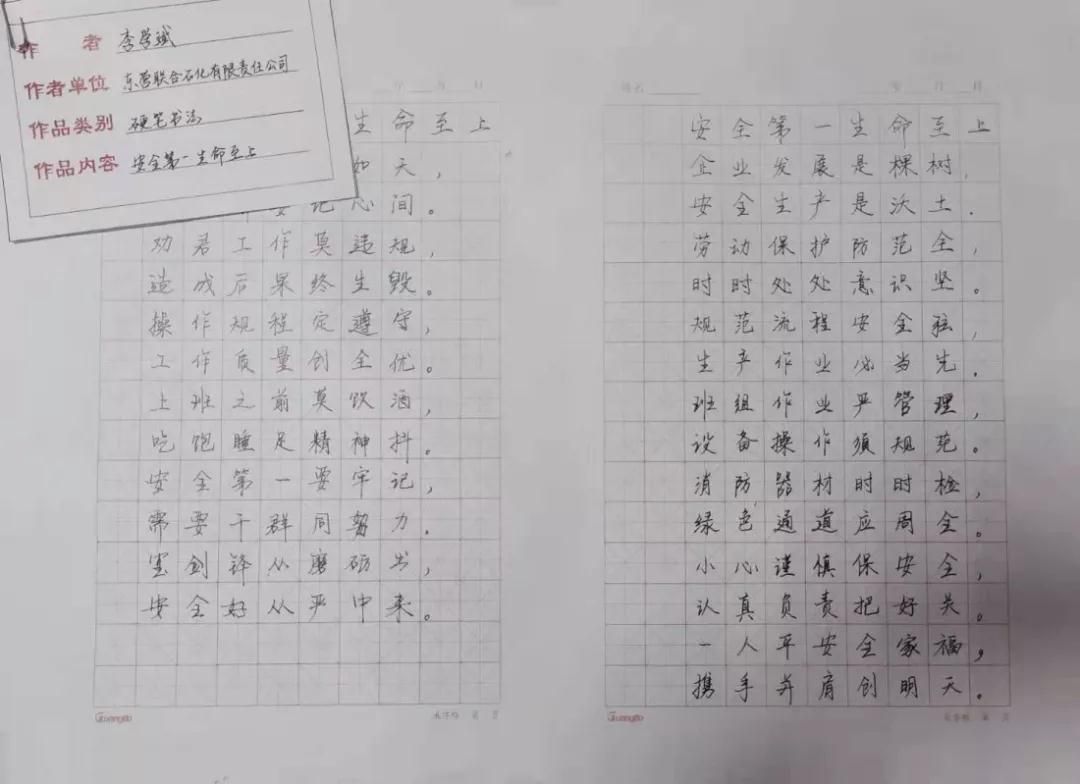 作 者 李学斌
作者单位 东营联合石化有限责任公司
作品类别 硬笔书法
作品内容 安全第一生命至上
生命至上
如天，
要记心间。
劝君工作莫违规，
造成后果终生毁。
操作规程定遵守，
工作质量创全优。
上班之前莫饮酒，
吃饱睡足精神抖。
安全第一要牢记，
需要干群同努力．
宝剑锋从磨砺出，
安全好从严中来。
年 月 日
安全第一生命至上
企业发展是棵树，
安全生产是沃土．
劳动保护防范全，
时时处处意识坚。
规范流程安全弦，
生产作业必当先．
班组作业严管理，
设备操作须规范。
消防器材时时检，
绿色通道应周全。
小心谨慎保安全，
认真负责把好关。
一人平安全家福，
携手并肩创明天。
Guangbo
Guangbo